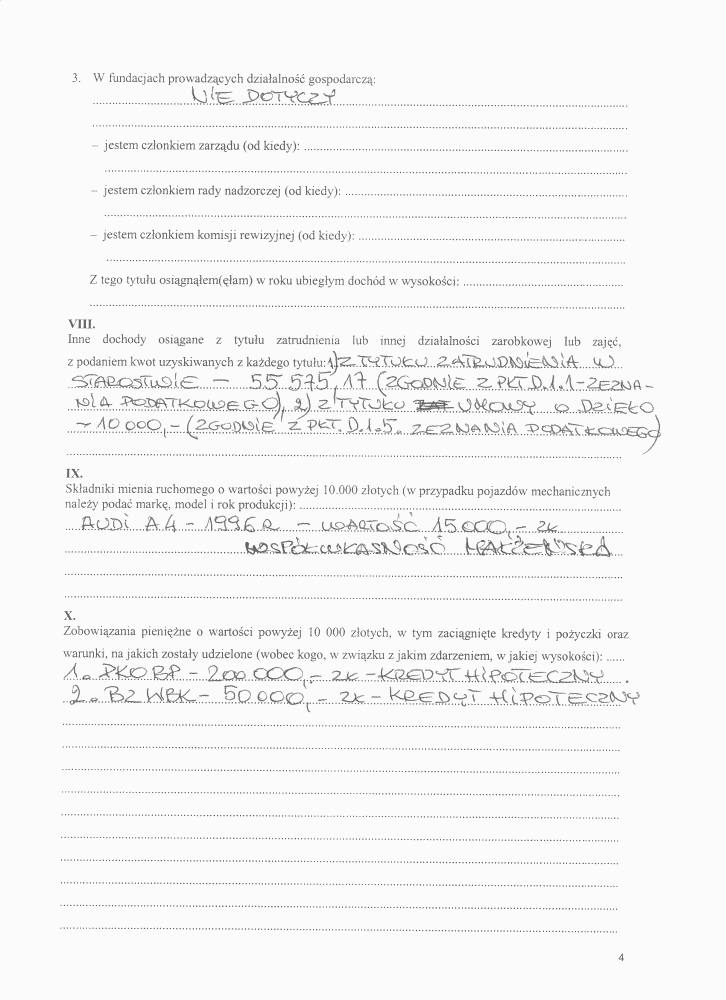 3. W fundacjach prowadzących działalność gospodarczą:
NIE DOTYCZY
– jestem członkiem zarządu (od kiedy):
– jestem członkiem rady nadzorczej (od kiedy):
– jestem członkiem komisji rewizyjnej (od kiedy):
Z tego tytułu osiągnąłem(ęłam) w roku ubiegłym dochód w wysokości:
VIII.
Inne dochody osiągane z tytułu zatrudnienia lub innej działalności zarobkowej lub zajęć,
z podaniem kwot uzyskiwanych z każdego tytułu: 1) Z TYTUŁU ZATRUDNIENIA W
STAROSTWIE – 55 575,17 (ZGODNIE Z PKT. D.1.1 - ZEZNA-
NIA PODATKOWEGO), 2) Z TYTUŁU UMOWY O DZIEŁO
~ 10 000,- (ZGODNIE Z PKT. D.1.5. ZEZNANIA PODATKOWEGO)
IX.
Składniki mienia ruchomego o wartości powyżej 10.000 złotych (w przypadku pojazdów mechanicznych
należy podać markę, model i rok produkcji):
AUDI A4 - 1996 R – WARTOŚĆ 15 000,- ZŁ
WSPÓŁWŁASNOŚĆ MAŁŻEŃSKA
X.
Zobowiązania pieniężne o wartości powyżej 10 000 złotych, w tym zaciągnięte kredyty i pożyczki oraz
warunki, na jakich zostały udzielone (wobec kogo, w związku z jakim zdarzeniem, w jakiej wysokości):
1. PKO BP - 200 000,- ZŁ - KREDYT HIPOTECZNY.
2. BZ WBK - 50 000,- ZŁ - KREDYT HIPOTECZNY
4